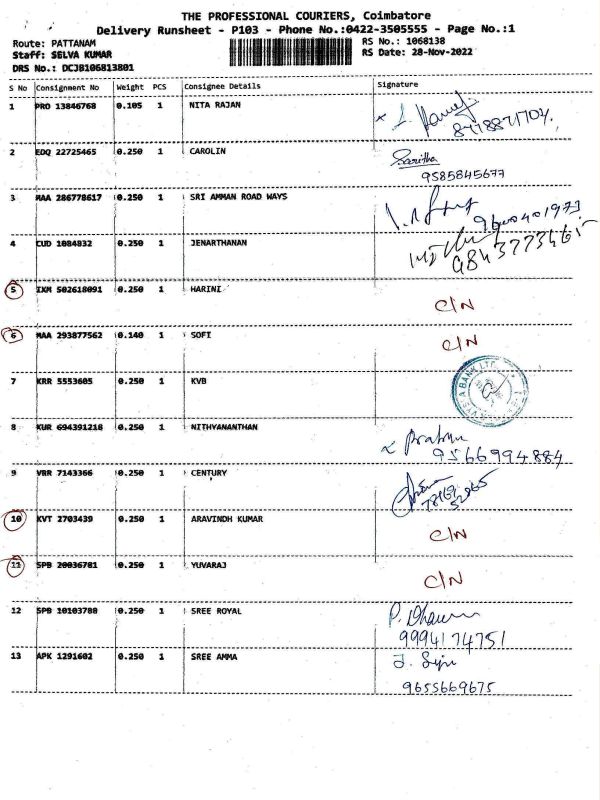 THE PROFESSIONAL COURIERS, Coimbatore
Delivery Runsheet - P103 - Phone No.:0422-3505555 - Page No.:1
Route: PATTANAM RS No.: 1068138
Staff: SELVA KUMAR RS Date: 28-Nov-2022
DRS No.: DCJB106813801
S No Consignment No Weight PCS Consignee Details Signature
1 PRO 13846768 0.105 1 NITA RAJAN
2 EDQ 22725465 0.250 1 CAROLIN
9585845677
3 MAA 286778617 0.250 1 SRI AMMAN ROAD WAYS
9600401973
4 CUD 1084832 0.250 1 JENARTHANAN
5 IXM 502618091 0.250 1 HARINI C/N
6 MAA 293877562 0.140 1 SOFI C/N
7 KRR 5553605 0.250 1 KVB
8 KUR 694391218 0.250 1 NITHYANANTHAN
9566994884
9 VRR 7143366 0.250 1 CENTURY
10 KVT 2703439 0.250 1 ARAVINDH KUMAR C/N
11 SPB 20036781 0.250 1 YUVARAJ C/N
12 SPB 10103780 0.250 1 SREE ROYAL
9994174751
13 APK 1291602 0.250 1 SREE AMMA
9655669675